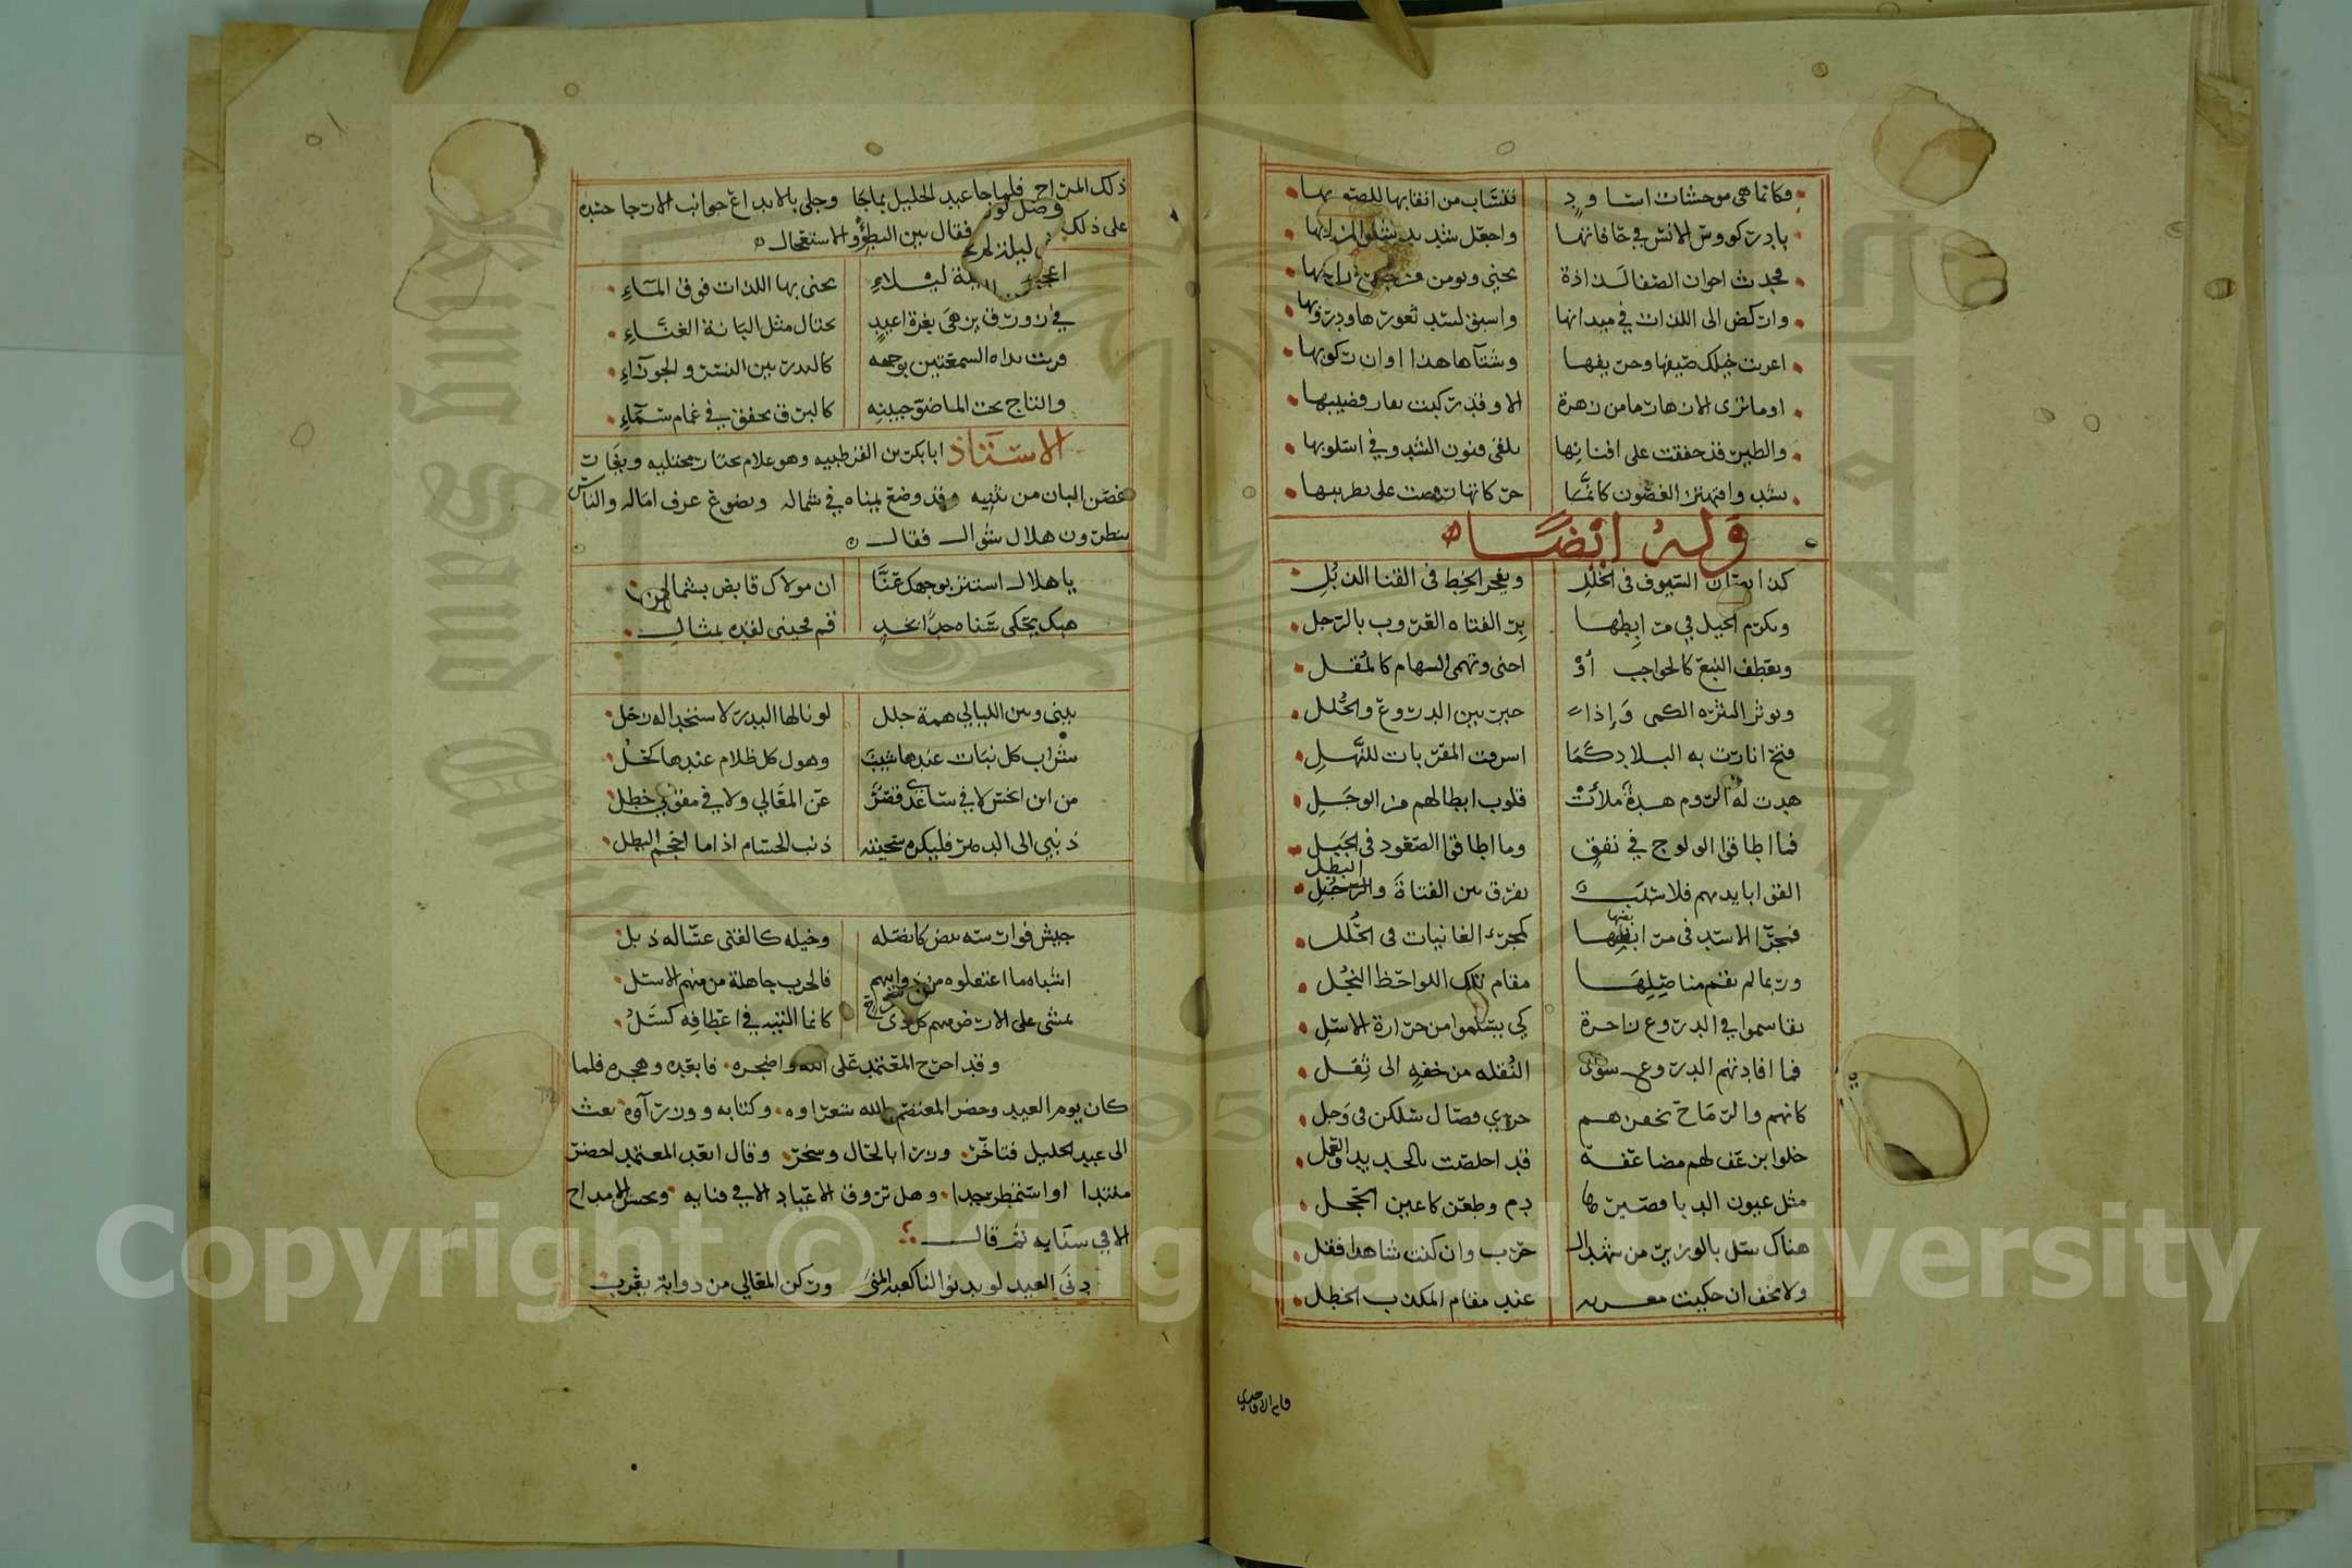 فكانما هي موحشات اساود تنساب من انقابها للصه بها
بادر كووس الانس في حافاتها واجعل شديد
فحديث اخوان الصفا لذاذة يجنى ويومن من
واركض الى اللذات في ميدانها واسبق لسد ثغورها ودروبها
اعريت خيلك صيفها وخريفها وشتاها هذا اوان ركوبها
اوما ترى الازهار ما من زهرة الا وقد ركبت فقار قضيبها
والطير قد خفقت على افنانها تلقى فنون الشدو في اسلوبها
تشدو وتهتز الغصون كانما حركاتها رقصت على تطريبها
وله ايضا
كذا تصان السيوف في الخلل ويفخر الخط في القنا الذبل
ويكرم الخيل في مرابطها بر الفتاه العروب بالرجل
ويعطف النبع كالحواجب أو احنى وتهمى السهام كالمقل
ويوثر النثره الكمى وإذا حير بين الدروع والحلل
فتح انارت به البلاد كما اسرفت المقربات للنهل
هدت له الروم هدة ملأت قلوب ابطالهم من الوجل
فما اطاقوا الولوج في نفق وما اطاقوا الصعود في الجبل
القوا بايديهم فلا سلب يفرق بين الفتاة والرجل البطل
فجر الاسد في مرابضها كمجرى الغانيات في الحلل
وربما لم تقم مناصلها مقام تلك اللواحظ النجل
تقاسموا في الدروع زاخرة كي يسلموا من حرارة الاسل
فما افادتهم الدروع سوى النقله من خفه الى ثقل
كانهم والرماح تحفزهم حري فصال سلكن في وحل
خلوا بزعف لهم مضاعفة قد اخلصت بالحديد والعمل
مثل عيون الدبا فصيرها دم وطعن كاعين الحجل
هناك سل بالوزير من شهد ال حرب وان كنت شاهدا فقل
ولا تخف ان حكيت معربه عند مقام المكذب الخطل
ذلك المزاح فلما جا عبد الجليل بما جا وجلى بالابداع جوانب الارجا حسده
على ذلك فقال بين البطؤ والاستعجال
ليلة ليلاء يجنى بها اللذات فوق الماء
في زورق يزهى بغرة اغيد يختال مثل البانة الغناء
قرنت يداه الشمعتين بوجهه كالبدر بين النسر والجوزاء
والتاج تحت الما ضو جبينه كالبرق يخفق في غمام سماء
الاستاذ ابا بكر بن القرطبيه وهو غلام يحار مجتليه ويغار
غصن البان من تثنيه وقد وضع يمناه في شماله وتضوع عرف اماله والناس
ينظرون هلال شوال فقال
يا هلال استتر بوجهك عنا ان مولاك قابض بشمالي
هبك تحكي سناه خدا بخد قم فجئني لقده بمثال
بيني وبين الليالي همة جلل لو نالها البدر لاستخذا له زحل
سراب كل نبات عندها شيب وهول كل ظلام عندها كحل
من اين اخس لا في ساعدي قصر عن المعالي ولا في مقولي خطل
ذنبي الى الدهر فليكره سجيته ذنب الحسام اذا ما احجم البطل
جيش فوارسه بيض كانصله وخيله كالقنى عساله ذبل
اشباه ما اعتقلوه من ذوابلهم فالحرب جاهلة من منهم الاسل
يمشي على الارض منهم كل ذي مرح كانما التيه في اعطافه كسل
وقد احرج المعتمد على الله واضجره فابعده وهجره فلما
كان يوم العيد وحضر المعتصم بالله شعراوه وكتابه ووزرآوه بعث
الى عبد الجليل فتاخر وزرا بالحال وسخر وقال ابعد المعتمد احضر
منتدا او استمطر جدا وهل تروق الاعياد الا في فنايه وتحسن الامداح
الا في سنايه ثم قال
دنى العيد لو يدنو لنا كعبه المنى وركن المعالي من ذوابه يعرب